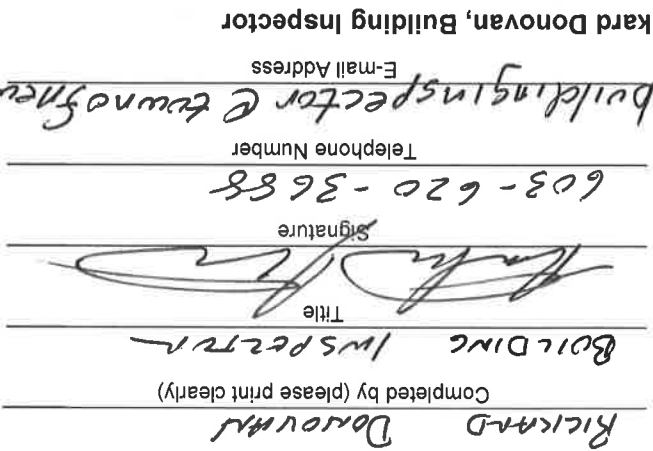 RICKARD DONOVAN
Completed by (please print clearly)
BUILDING INSPECTOR
Title
Signature
603-620-3688
Telephone Number
buildinginspector @ townofnew
E-mail Address
kard Donovan, Building Inspector